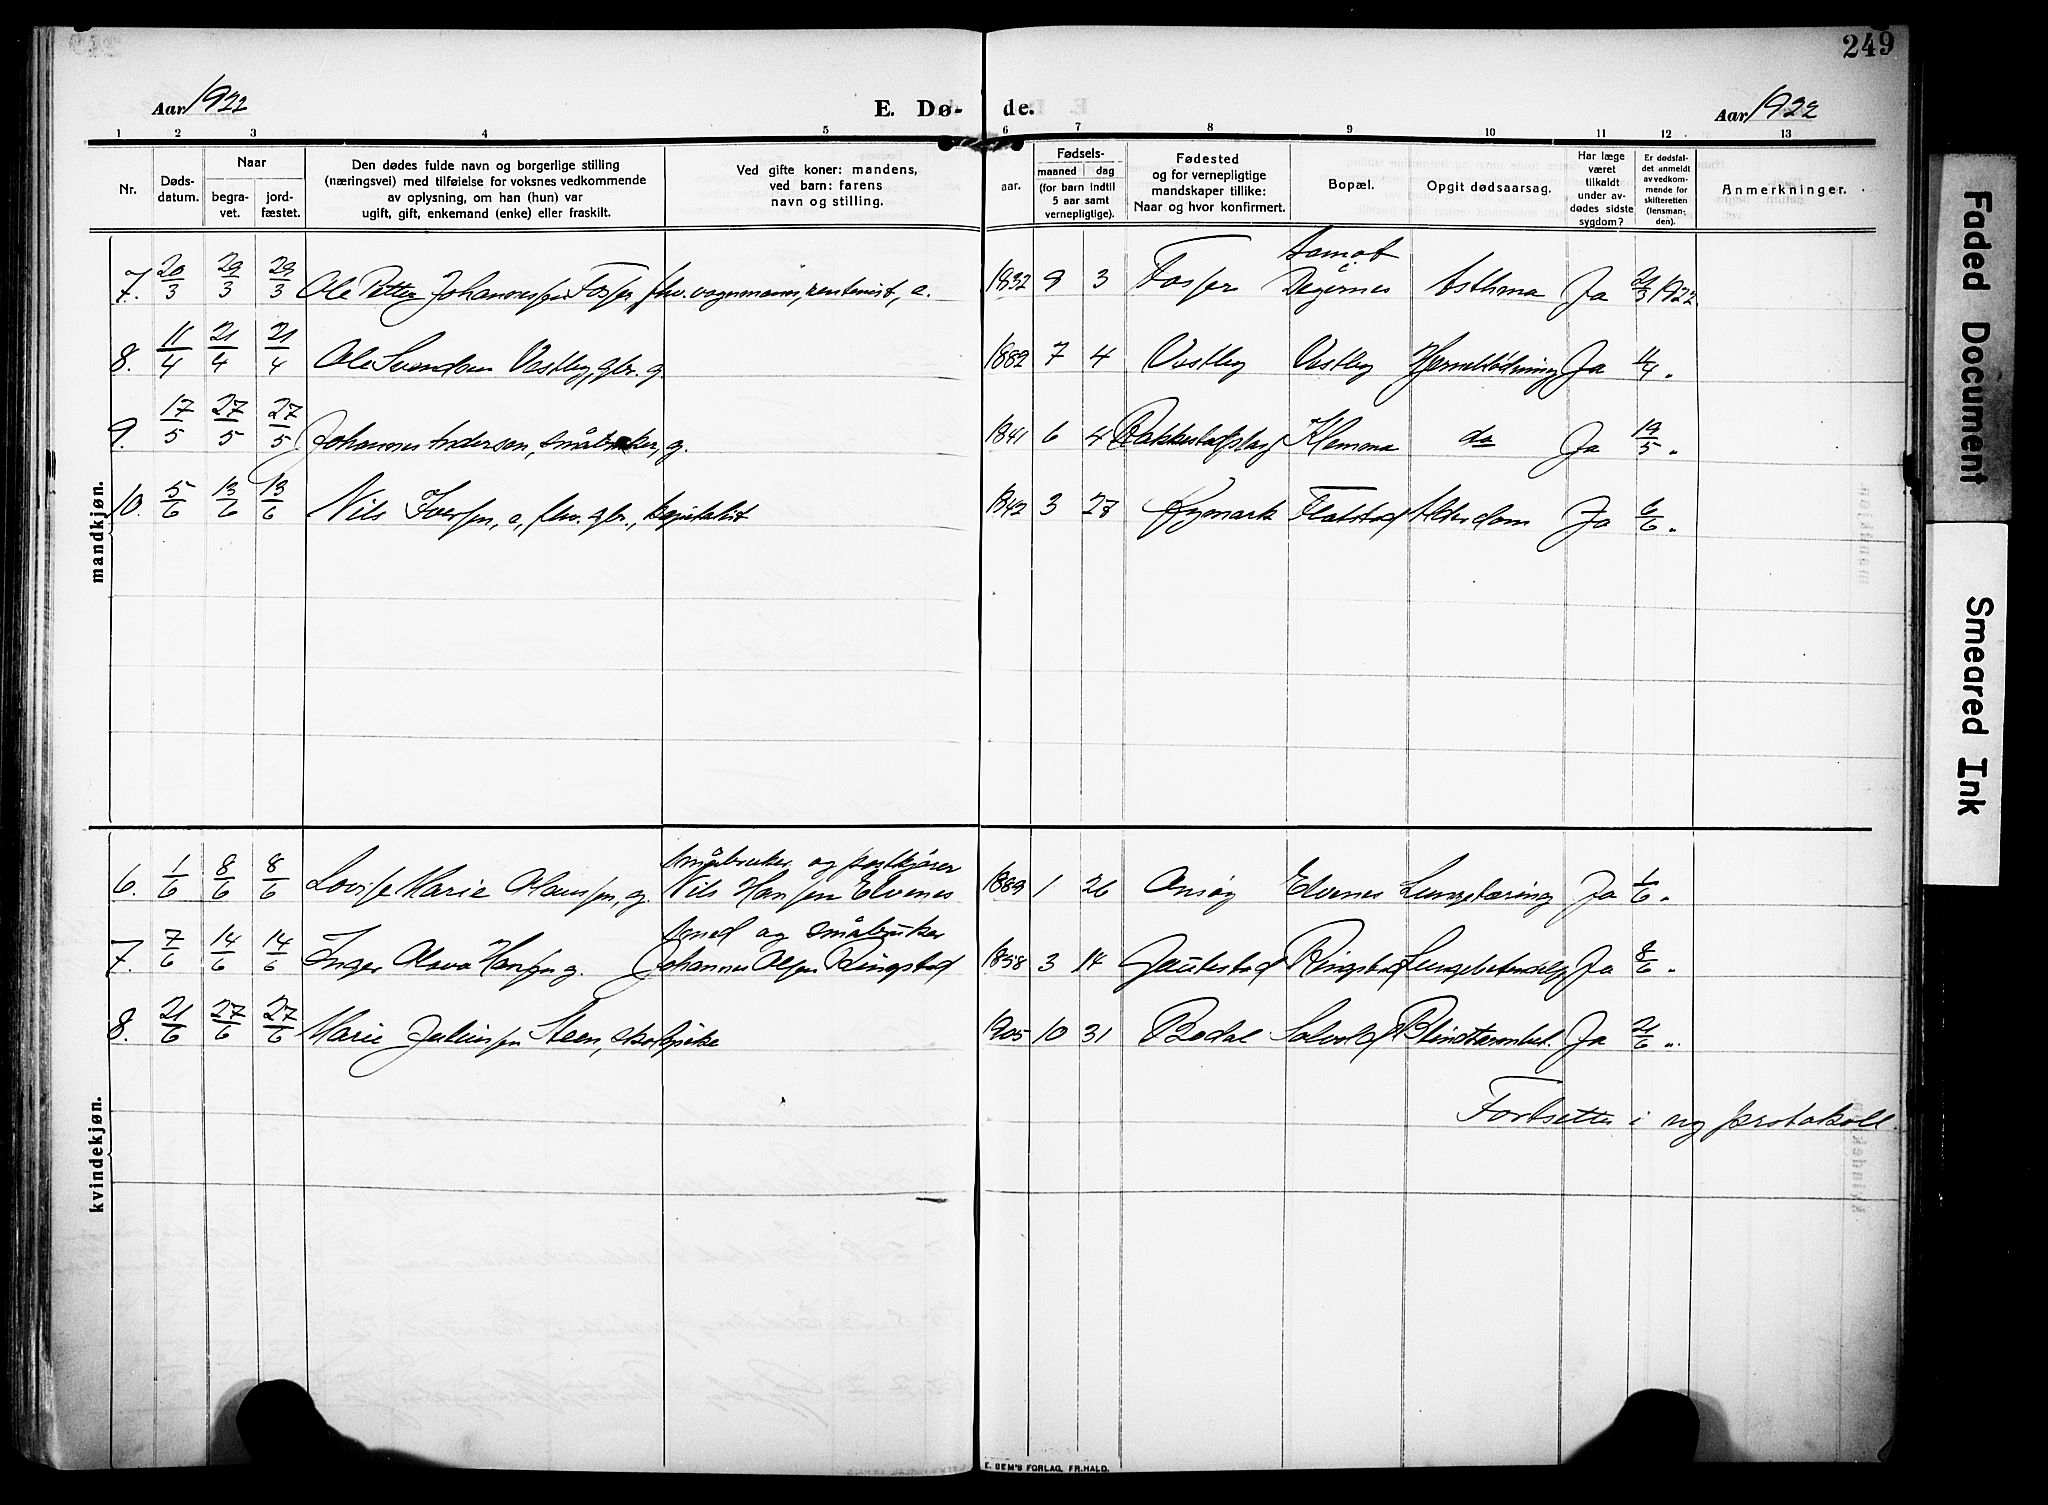 249
Aar 1922
E. Dø-
de.
Aar 1922
1 2 3 4 5 6 7 8 9 10 11 12 13
Nr.
Døds-
datum.
Naar
begra-
vet.
jord-
fæstet.
Den dødes fulde navn og borgerlige stilling
(næringsvei) med tilføielse for voksnes vedkommende
av oplysning, om han (hun) var
ugift, gift, enkemand (enke) eller fraskilt.
Ved gifte koner: mandens,
ved barn: farens
navn og stilling.
Fødsels-
aar.
maaned dag
(for barn indtil
5 aar samt
vernepligtige).
Fødested
og for vernepligtige
mandskaper tillike:
Naar og hvor konfirmert.
Bopæl.
Opgit dødsaarsag.
Har læge
været
tilkaldt
under av-
dødes sidste
sygdom?
Er dødsfal-
det anmeldt
av vedkom-
mende for
skifteretten
(lensman-
den).
Anmerkninger.
mandkjøn.
7. 20/3 29/3 29/3 Ole Petter Johannessen Fosser, fhv. vognmann, rentenist, e. 1832 9 3 Fosser Degernes Asthma Ja 1922
8. 11/4 21/4 21/4 Ole Svendsen Vestby, gbr. g. 1882 7 4 Vestby Vestby Hjerneblødning Ja
9. 17/5 27/5 27/5 Johannes Anderson, småbruker, g. 1841 6 4 Klemma do Ja 19/5 "
10. 5/6 13/6 13/6 Nils Iversen, e, fhv. gbr., kapitalist 1842 3 27 Rymark Flatstad Alderdom Ja 6/6 "
kvindekjøn.
småbruker og postkjører
6. 1/6 8/6 8/6 Lovise Marie Olaussen, g. Nils Hansen Elvenes 1889 1 26 Elvenes Lungetæring Ja 1/6 "
smed og småbruker
7. 7/6 14/6 14/6 Inger Olava Hansen g. Johannes Olsen Ringstad 1858 3 14 Gautestad Ringstad Lungebetendelse Ja 8/6 "
8. 21/6 27/6 27/6 Marie Juliussen Steen, skolepike 1905 10 31 Bodal Blindtarmbet. Ja 21/6 "
Fortsettes i ny protokoll.
E. SEM'S FORLAG, FR.HALD.
Faded Document
Smeared Ink